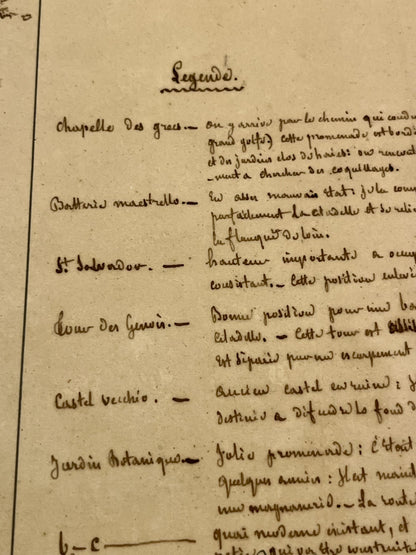 Legende.
Chapelle des grecs. — on y arrive par le chemin qui condu
grand golfe) cette promenade est bord
et des jardins clos de haies: on rencont
-nent a chercher des coquillages.
Batterie maestrello. — En assez mauvais état: je la con
parfaitement la citadelle et se reli
la flanquer de loin.
St Salvador. — hauteur importante a occup
consistant. — Cette position enlevé
Tour des Genois. — Bonne position pour une ba
Citadelle. — Cette tour est
est séparée par un escarpement
Castel vecchio. — ancien castel en ruine: J
destiné a défendre le fond d
Jardin Botanique — Jolie promenade: C'était
quelques années: Il est maint
une magnanerie. — La route
b — c — quai moderne existant, et